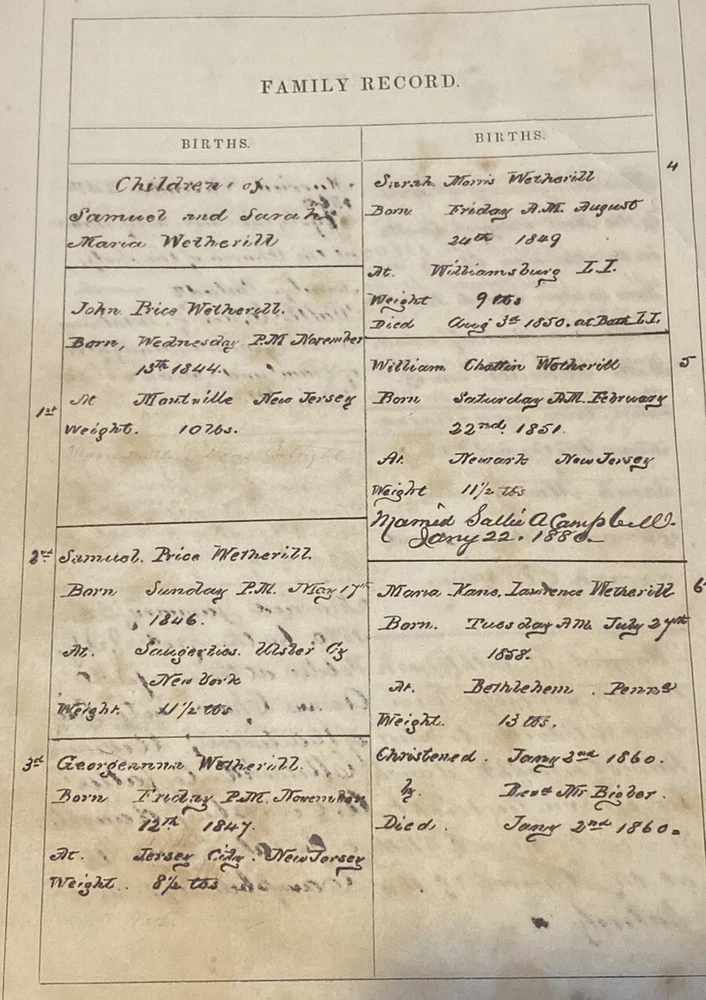 FAMILY RECORD.
BIRTHS.
Children of
Samuel and Sarah
Maria Wetherill
John Price Wetherill.
Born, Wednesday P.M November
13th 1844.
1st At Montville New Jersey
Weight. 10 lbs.
2nd Samuel. Price Wetherill.
Born Sunday P.M. May 17th
1846.
At. Saugerties. Ulster Cy
New York
Weight. 11 1/2 lbs
3rd Georgeanna Wetherill.
Born Friday P.M. November
12th 1847.
At. Jersey City. New Jersey
Weight. 8 1/2 lbs
BIRTHS.
4
Sarah Morris Wetherill
Born Friday A.M. August
24th 1849
At. Williamsburg L.I.
Weight 9 lbs
Died Aug 3d 1850. at Bath L.I.
William Chattin Wetherill 5
Born Saturday A.M. February
22nd. 1851.
At. Newark New Jersey
Weight 11 1/2 lbs
Married Sallie A Campbell.
Jany 22. 1880
Maria Kane. Lawrence Wetherill 6
Born. Tuesday A.M. July 27th
1858.
At. Bethlehem. Penna
Weight. 13 lbs.
Christened. Jany 2nd 1860.
by. Revd Mr Bigler.
Died. Jany 2nd 1860.